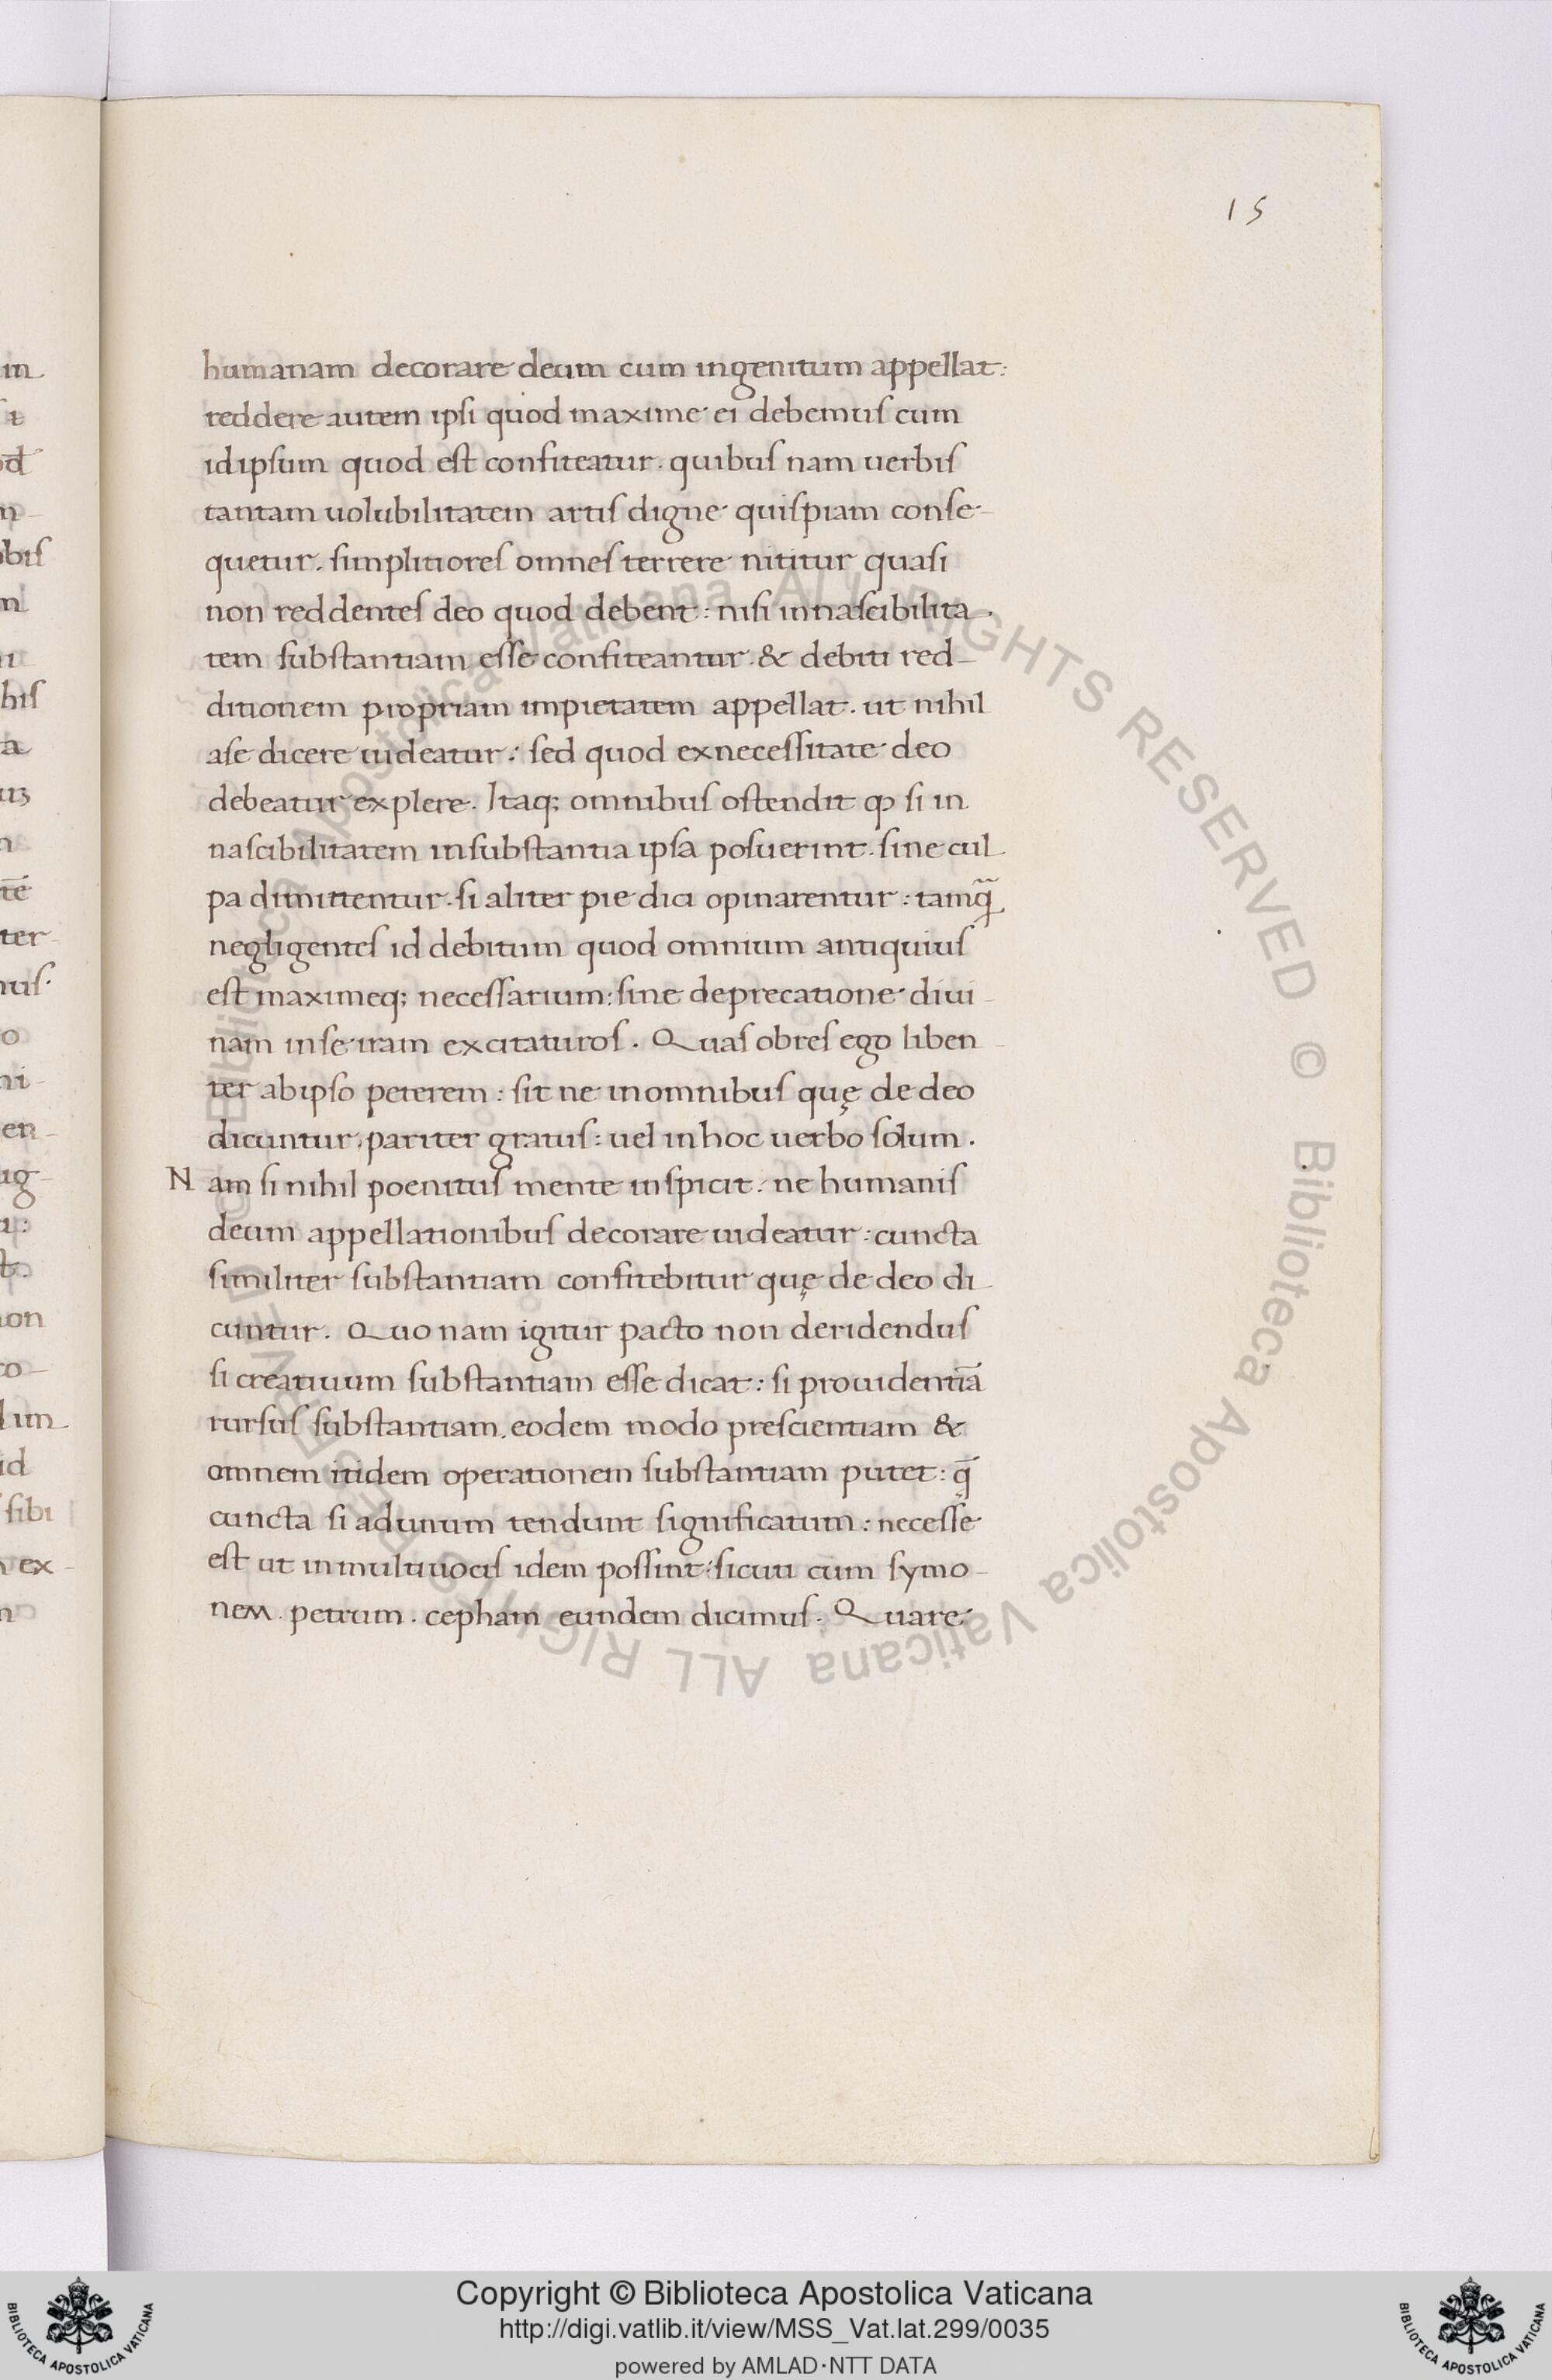 15
humanam decorare deum cum ingenitum appellat:
reddere autem ipsi quod maxime ei debemus cum
idipsum quod est confiteatur. quibus nam uerbis
tantam uolubilitatem artis digne quispiam conse-
quetur. simplitiores omnes terrere nititur quasi
non reddentes deo quod debent: nisi innascibilita-
tem substantiam esse confiteantur. & debiti red-
ditionem propriam impietatem appellat. ut nihil
ase dicere uideatur: sed quod exnecessitate deo
debeatur explere. Itaq; omnibus ostendit ꝙ si in
nascibilitatem insubstantia ipsa posuerint. sine cul-
pa dimittentur. si aliter pie dici opinarentur: tamq̃
negligentes id debitum quod omnium antiquius
est maximeq; necessarium: sine deprecatione diui-
nam inse iram excitaturos. Quas obres ego liben-
ter abipso peterem: sit ne inomnibus quę de deo
dicuntur. pariter gratus: uel inhoc uerbo solum.
Nam si nihil poenitus mente inspicit. ne humanis
deum appellationibus decorare uideatur: cuncta
similiter substantiam confitebitur quę de deo di-
cuntur. Quo nam igitur pacto non deridendus
si creatiuum substantiam esse dicat: si prouidentiā
rursus substantiam. eodem modo prescientiam &
omnem itidem operationem substantiam putet: q̄
cuncta si adunum tendunt significatum: necesse
est ut inmultiuocis idem possint: sicuti cum symo-
nem. petrum. cepham eundem dicimus. Quare
Copyright © Biblioteca Apostolica Vaticana
http://digi.vatlib.it/view/MSS_Vat.lat.299/0035
powered by AMLAD·NTT DATA